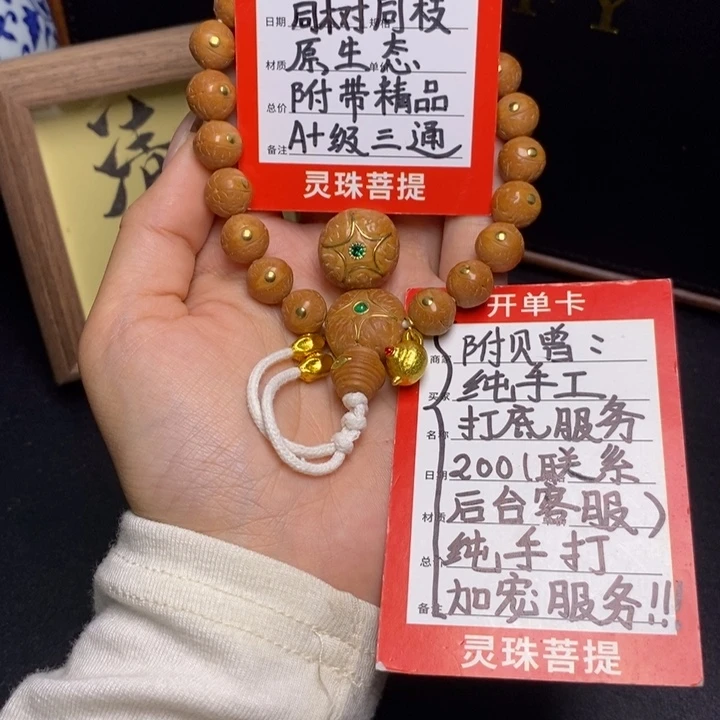 同树同枝
日期
规格
原生态
材质
单价
附带精品
总价
A+级三通
备注
灵珠菩提
开单卡
附贝曾：
商家
纯手工
买家
打底服务
名称
200(联系
日期
后台客服)
材质
纯手打
总价
加宏服务!!!
备注
灵珠菩提